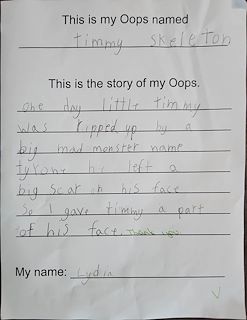 This is my Oops named
timmy skeleton
This is the story of my Oops.
one day little timmy
was ripped up by a
big mad monster name
tyrone he left a
big scar in his face
So I gave timmy a part
of his face. Thank you.
My name: Lydia